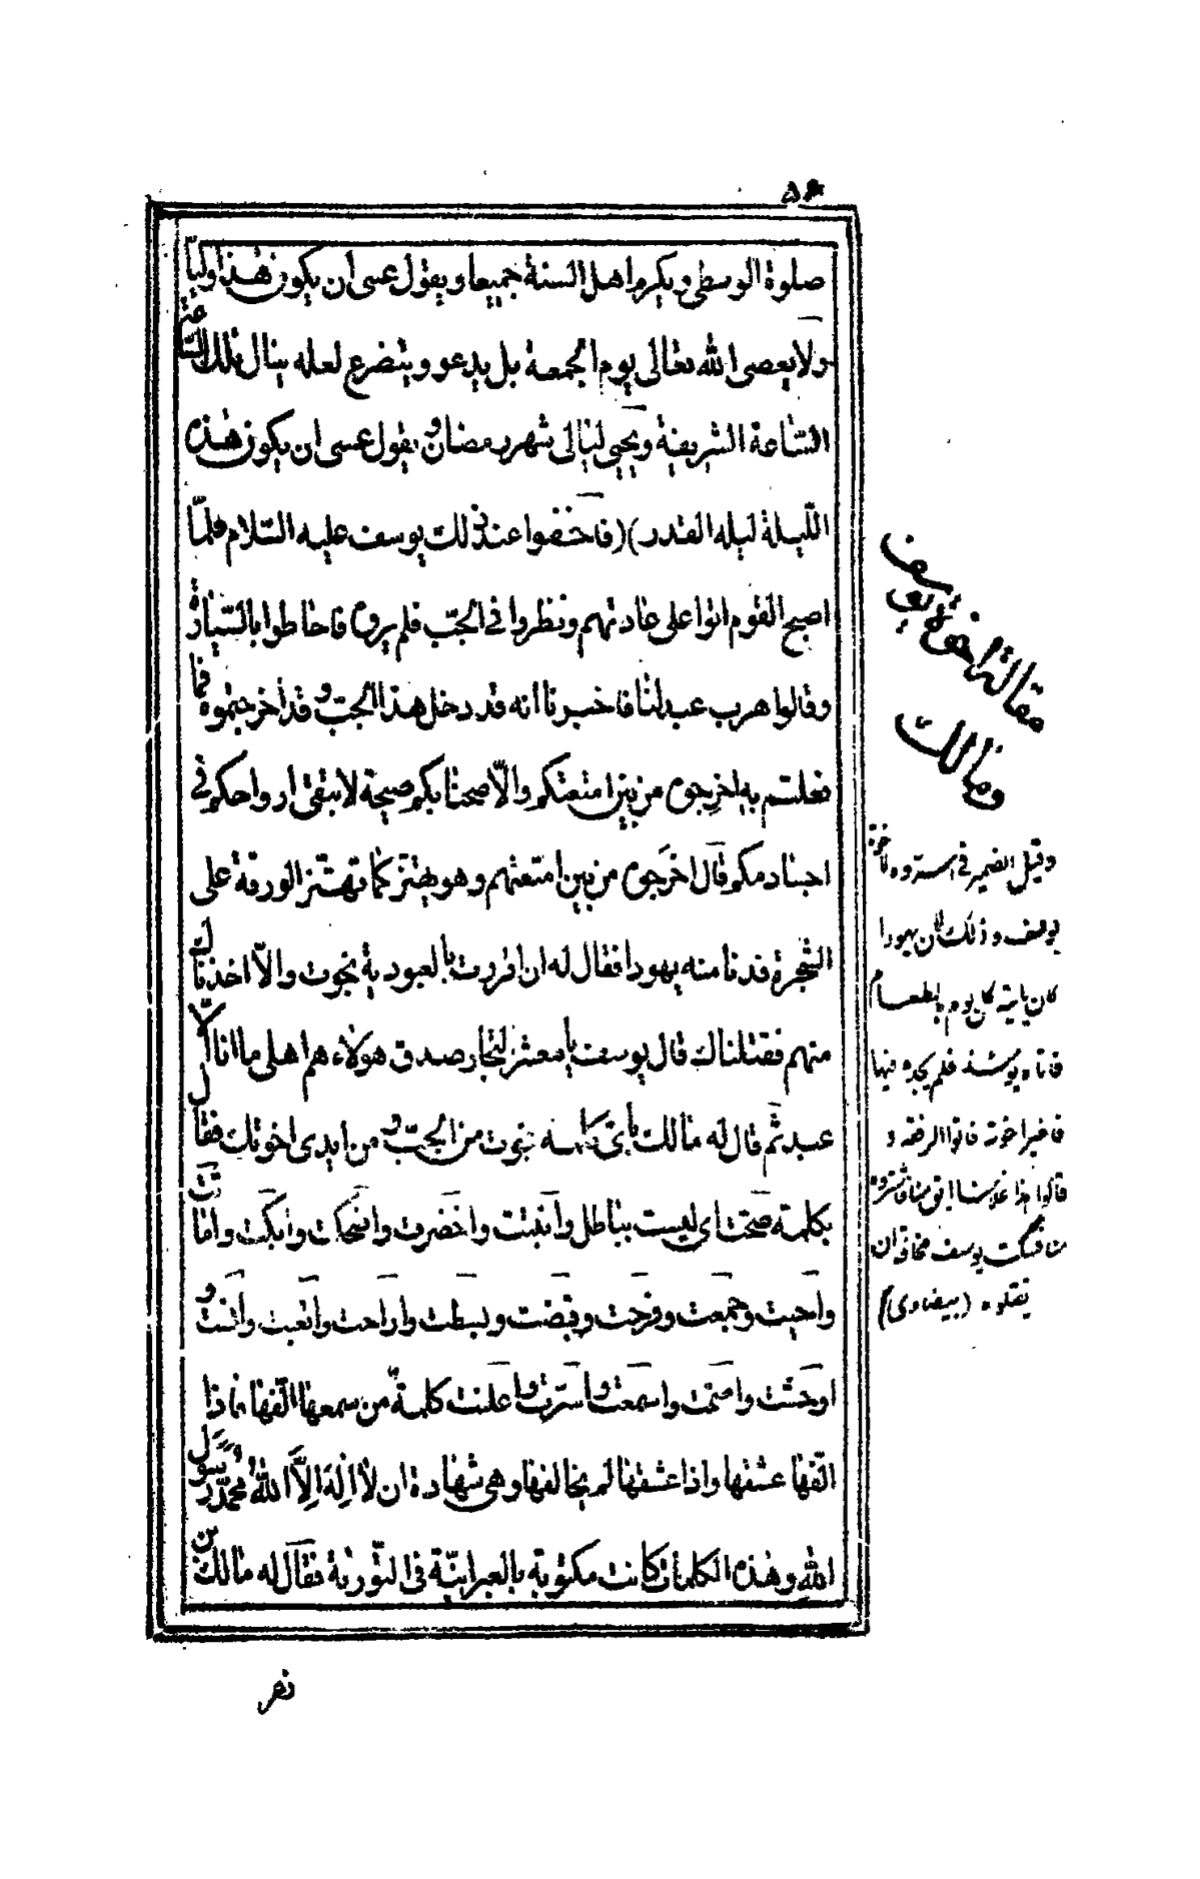 ۵۶
صلوة الوسطى ويكرم اهل السنة جميعا ويقول عسى ان يكون هذا وليا
ولا يعصى الله تعالى يوم الجمعة بل يدعو ويتضرع لعله ينال تلك
الساعة الشريفة ويحيى ليالى شهر رمضان ويقول عسى ان يكون هذه
الليلة ليله القدر)(فاخفوا عند ذلك يوسف عليه السلام فلما
اصبح القوم اتوا على عادتهم ونظروا فى الجب فلم يروه فاحاطوا بالسيارة
وقالوا هرب عبد لنا فاخبرنا انه قد دخل هذا الجب وقد اخرجتموه فما
فعلتم به اخرجوه من بين امتعتكم والا صحنا بكم صيحة لا تبقى ارواحكم فى
اجسادكم قال اخرجوه من بين امتعتهم وهو يهتز كما تهتز الورقة على
الشجرة فدنا منه يهودا فقال له ان اقررت بالعبودية نجوت والا اخذناك
منهم فقتلناك قال يوسف يا معشر التجار صدق هولاء هم اهلى ما انا الا
عبد ثم قال له مالك باى كلمه نجوت من الجب ومن ايدى اخوتك فقال
بكلمة صحت اى ليست بباطل وأنبتت واخضرت واضحكت وابكت واماتت
واحيت وجمعت وفرحت وقبضت وبسطت واراحت واتعبت وانست و
اوحشت واصمت واسمعت واسرت واعلنت كلمة من سمعها الفها فاذا
الفها عشقها واذا عشقها لم يخالفها وهى شهادة ان لا اله الا الله محمد رسول
الله وهذه الكلمات كانت مكتوبة بالعبرانية فى التورية فقال له مالك بن
مقالة اخوة يوسف
ومالك
وقيل الضمير فى اسروه لاخوة
يوسف وذلك لان يهودا
كان ياتيه كل يوم بالطعام
فاتاه يومئذ فلم يجده فيها
فاخبر اخوته فاتوا الرفقة و
قالوا هذا غلامنا ابق منا فاشتروه
منا فسكت يوسف مخافة ان
يقتلوه (بيضاوى)